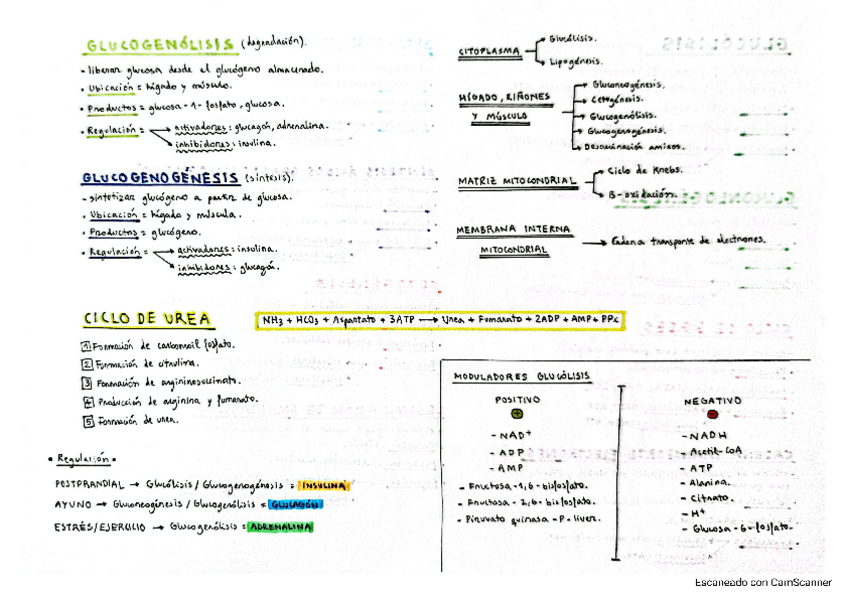 GLUCOGENÓLISIS (degradación).
- liberar glucosa desde el glucógeno almacenado.
- Ubicación = hígado y músculo.
- Productos = glucosa-1-fosfato, glucosa.
- Regulación = activadores: glucagón, adrenalina.
inhibidores: insulina.
GLUCOGENOGÉNESIS (síntesis).
- sintetizar glucógeno a partir de glucosa.
- Ubicación = hígado y músculo.
- Productos = glucógeno.
- Regulación = activadores: insulina.
inhibidores: glucagón.
CITOPLASMA
Glucólisis.
Lipogénesis.
HÍGADO, RIÑONES
Y MÚSCULO
Gluconeogénesis.
Cetogénesis.
Glucogenólisis.
Glucogenogénesis.
Desaminación aminos.
MATRIZ MITOCONDRIAL
Ciclo de Krebs.
B-oxidación.
MEMBRANA INTERNA
MITOCONDRIAL
Cadena transporte de electrones.
CICLO DE UREA
NH3 + HCO3 + Aspartato + 3ATP → Urea + Fumarato + 2ADP + AMP + PPi
1 Formación de carbamoil fosfato.
2 Formación de citrulina.
3 Formación de argininosuccinato.
4 Producción de arginina y fumarato.
5 Formación de urea.
• Regulación •
POSTPRANDIAL → Glucólisis / Glucogenogénesis = INSULINA
AYUNO → Gluconeogénesis / Glucogenólisis = GLUCAGÓN
ESTRÉS/EJERCICIO → Glucogenólisis = ADRENALINA
MODULADORES GLUCÓLISIS
POSITIVO
+
- NAD+
- ADP
- AMP
- Fructosa-1,6-bisfosfato.
- Fructosa-2,6-bisfosfato.
- Piruvato quinasa-P-liver.
NEGATIVO
-
- NADH
- Acetil-CoA
- ATP
- Alanina.
- Citrato.
- H+
- Glucosa-6-fosfato.
Escaneado con CamScanner